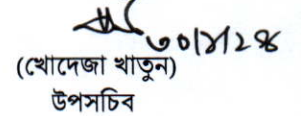 ৩০/১/২৪
(খোদেজা খাতুন)
উপসচিব